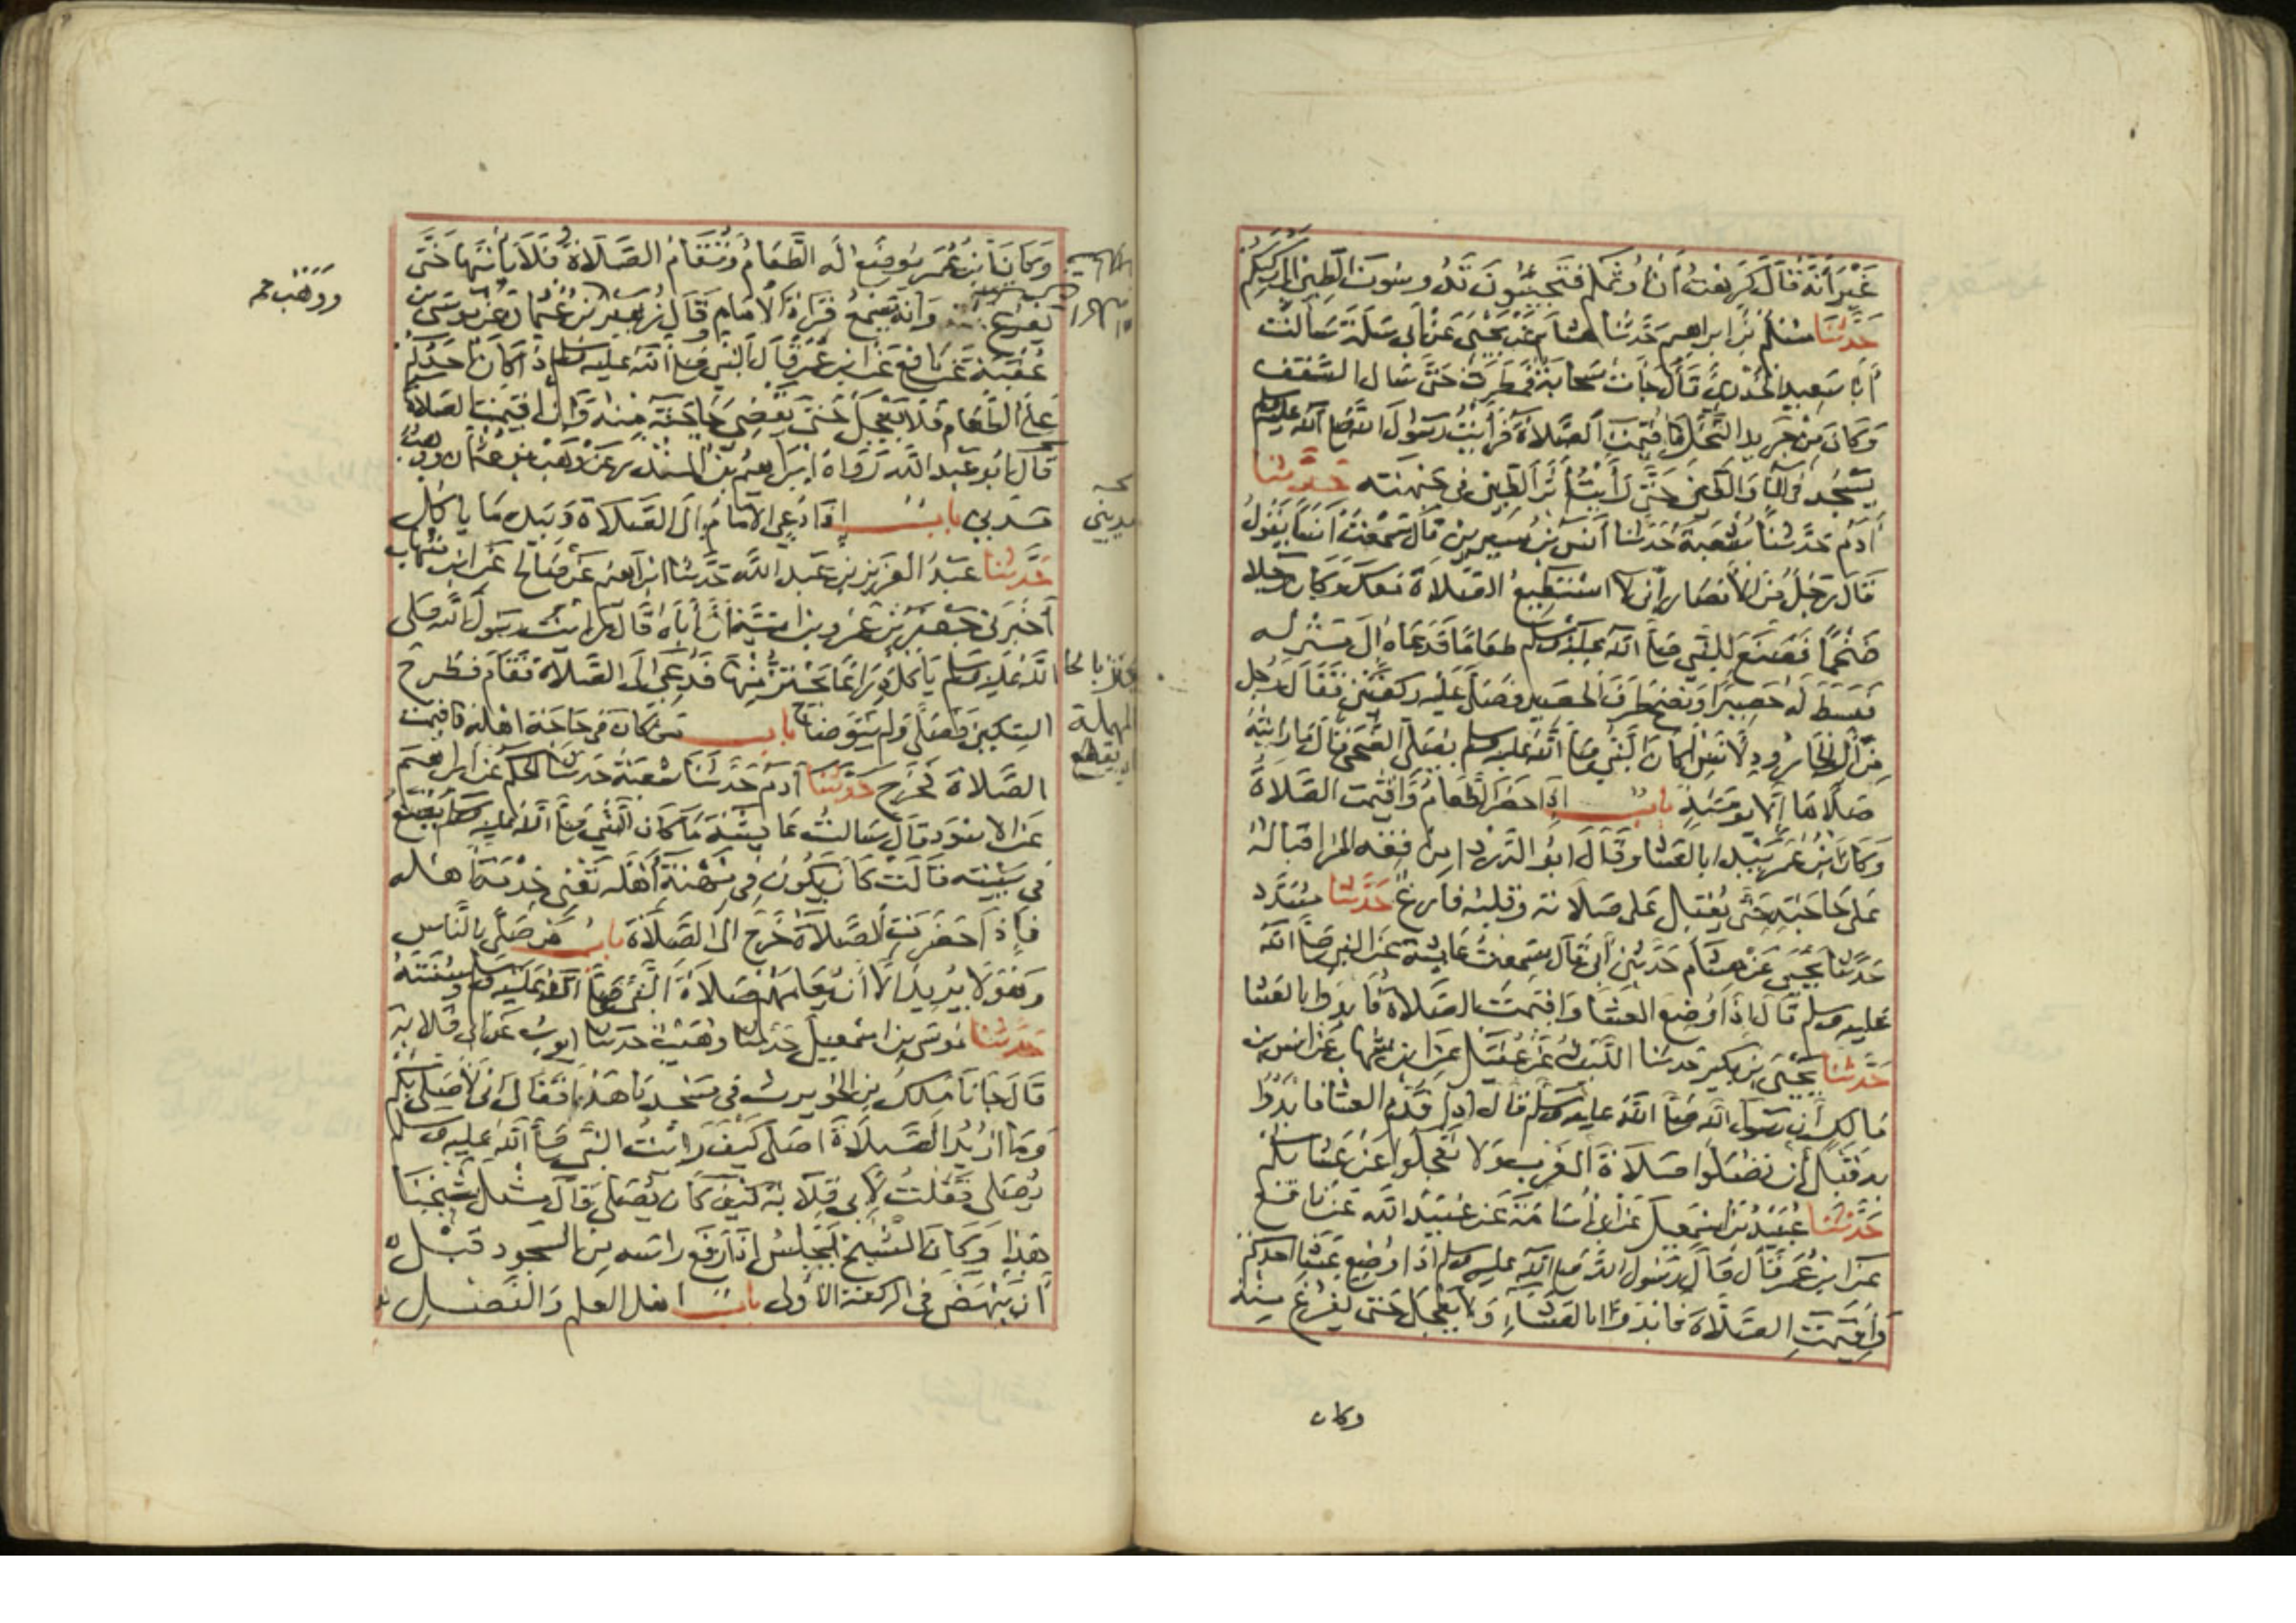 غَيْرَ أَنَّهُ قَالَ كَرِهْتُ أَنْ أُؤَثِّمَكُمْ فَتَجِيئُونَ تَدُوسُونَ الطِّينَ إِلَى رُكَبِكُمْ
حَدَّثَنَا مُسْلِمُ بْنُ إبراهيم حَدَّثَنَا هشام عَنْ يَحْيَى عَنْ أَبِي سَلَمَةَ سَأَلْتُ
أَبَا سَعِيدٍ الْخُدْرِيَّ فَقَالَ جَاءَتْ سَحَابَةٌ فَمَطَرَتْ حَتَّى سَالَ السَّقْفُ
وَكَانَ مِنْ جَرِيدِ النَّخْلِ فَأُقِيمَتِ الصَّلَاةُ فَرَأَيْتُ رَسُولَ اللَّهِ صلى الله عليه وسلم
يَسْجُدُ فِي الْمَاءِ وَالطِّينِ حَتَّى رَأَيْتُ أَثَرَ الطِّينِ فِي جَبْهَتِهِ حَدَّثَنَا
آدَمُ حَدَّثَنَا شُعْبَةُ حَدَّثَنَا أَنَسُ بْنُ سِيرِينَ قَالَ سَمِعْتُ أَنَسًا يَقُولُ
قَالَ رَجُلٌ مِنَ الْأَنْصَارِ إِنِّي لَا أَسْتَطِيعُ الصَّلَاةَ مَعَكَ وَكَانَ رَجُلًا
ضَخْمًا فَصَنَعَ لِلنَّبِيِّ صلى الله عليه وسلم طَعَامًا فَدَعَاهُ إِلَى مَنْزِلِهِ
فَبَسَطَ لَهُ حَصِيرًا وَنَضَحَ طَرَفَ الْحَصِيرِ فَصَلَّى عَلَيْهِ رَكْعَتَيْنِ فَقَالَ رَجُلٌ
مِنْ آلِ الْجَارُودِ لِأَنَسٍ أَكَانَ النَّبِيُّ صلى الله عليه وسلم يُصَلِّي الضُّحَى قَالَ مَا رَأَيْتُهُ
صَلَّاهَا إِلَّا يَوْمَئِذٍ بابٌ إِذَا حَضَرَ الطَّعَامُ وَأُقِيمَتِ الصَّلَاةُ
وَكَانَ ابْنُ عُمَرَ يَبْدَأُ بِالْعَشَاءِ وَقَالَ أَبُو الدَّرْدَاءِ مِنْ فِقْهِ الْمَرْءِ إِقْبَالُهُ
عَلَى حَاجَتِهِ حَتَّى يُقْبِلَ عَلَى صَلَاتِهِ وَقَلْبُهُ فَارِغٌ حَدَّثَنَا مُسَدَّدٌ
حَدَّثَنَا يَحْيَى عَنْ هِشَامٍ حَدَّثَنِي أَبِي قَالَ سَمِعْتُ عَائِشَةَ عَنِ النبي صلى الله
عليه وسلم قَالَ إِذَا وُضِعَ الْعَشَاءُ وَأُقِيمَتِ الصَّلَاةُ فَابْدَؤُا بِالْعَشَاءِ
حَدَّثَنَا يَحْيَى بْنُ بُكَيْرٍ حَدَّثَنَا اللَّيْثُ عَنْ عُقَيْلٍ عَنِ ابْنِ شِهَابٍ عَنْ أَنَسِ بْنِ
مَالِكٍ أَنَّ رَسُولَ اللَّهِ صلى الله عليه وسلم قَالَ إِذَا قُدِّمَ الْعَشَاءُ فَابْدَؤُا
بِهِ قَبْلَ أَنْ تُصَلُّوا صَلَاةَ الْمَغْرِبِ وَلَا تَعْجَلُوا عَنْ عَشَائِكُمْ
حَدَّثَنَا عُبَيْدُ بْنُ إِسْمَعِيلَ عَنْ أَبِي أُسَامَةَ عَنْ عُبَيْدِ اللَّهِ عَنْ نَافِعٍ
عَنِ ابْنِ عُمَرَ قَالَ قَالَ رَسُولُ اللَّهِ صلى الله عليه وسلم إِذَا وُضِعَ عَشَاءُ أَحَدِكُمْ
وَأُقِيمَتِ الصَّلَاةُ فَابْدَؤُا بِالْعَشَاءِ وَلَا يَعْجَلْ حَتَّى يَفْرُغَ مِنْهُ
وكان
وَكَانَ ابْنُ عُمَرَ يُوضَعُ لَهُ الطَّعَامُ وَتُقَامُ الصَّلَاةُ فَلَا يَأْتِيهَا حَتَّى
يَفْرُغَ وَإِنَّهُ يَسْمَعُ قِرَاءَةَ الْإِمَامِ وَقَالَ زُهَيْرٌ عَنْ مُوسَى بْنِ
عُقْبَةَ عَنْ نَافِعٍ عَنِ ابْنِ عُمَرَ قَالَ قَالَ النَّبِيُّ صلى الله عليه وسلم إِذَا كَانَ أَحَدُكُمْ
عَلَى الطَّعَامِ فَلَا يَعْجَلْ حَتَّى يَقْضِيَ حَاجَتَهُ مِنْهُ وَإِنْ أُقِيمَتِ الصَّلَاةُ
قَالَ أَبُو عَبْدِ اللَّهِ رَوَاهُ إِبْرَاهِيمُ بْنُ الْمُنْذِرِ عَنْ وَهْبِ بْنِ عُثْمَانَ وَوَهْبٌ
مَدِينِيٌّ بابٌ إِذَا دُعِيَ الْإِمَامُ إِلَى الصَّلَاةِ وَبِيَدِهِ مَا يَأْكُلُ
حَدَّثَنَا عَبْدُ الْعَزِيزِ بْنُ عَبْدِ اللَّهِ حَدَّثَنَا إِبْرَاهِيمُ عَنْ صَالِحٍ عَنِ ابْنِ شِهَابٍ
أَخْبَرَنِي جَعْفَرُ بْنُ عَمْرِو بْنِ أُمَيَّةَ أَنَّ أَبَاهُ قَالَ رَأَيْتُ رَسُولَ اللَّهِ صلى
الله عليه وسلم يَأْكُلُ ذِرَاعًا يَحْتَزُّ مِنْهَا فَدُعِيَ إِلَى الصَّلَاةِ فَقَامَ فَطَرَحَ
السِّكِّينَ فَصَلَّى وَلَمْ يَتَوَضَّأْ بابُ مَنْ كَانَ فِي حَاجَةِ أَهْلِهِ فَأُقِيمَتِ
الصَّلَاةُ فَخَرَجَ حَدَّثَنَا آدَمُ حَدَّثَنَا شُعْبَةُ حَدَّثَنَا الْحَكَمُ عَنْ إِبْرَاهِيمَ
عَنِ الْأَسْوَدِ قَالَ سَأَلْتُ عَائِشَةَ مَا كَانَ النَّبِيُّ صلى الله عليه وسلم يَصْنَعُ
فِي بَيْتِهِ قَالَتْ كَانَ يَكُونُ فِي مِهْنَةِ أَهْلِهِ تَعْنِي خِدْمَةَ أَهْلِهِ
فَإِذَا حَضَرَتِ الصَّلَاةُ خَرَجَ إِلَى الصَّلَاةِ بابُ مَنْ صَلَّى بِالنَّاسِ
وَهُوَ لَا يُرِيدُ إِلَّا أَنْ يُعَلِّمَهُمْ صَلَاةَ النَّبِيِّ صلى الله عليه وسلم وَسُنَّتَهُ
حَدَّثَنَا مُوسَى بْنُ إِسْمَعِيلَ حَدَّثَنَا وُهَيْبٌ حَدَّثَنَا أَيُّوبُ عَنْ أَبِي قِلَابَةَ
قَالَ جَاءَنَا مَالِكُ بْنُ الْحُوَيْرِثِ فِي مَسْجِدِنَا هَذَا فَقَالَ إِنِّي لَأُصَلِّي بِكُمْ
وَمَا أُرِيدُ الصَّلَاةَ أُصَلِّي كَيْفَ رَأَيْتُ النَّبِيَّ صلى الله عليه وسلم
يُصَلِّي فَقُلْتُ لِأَبِي قِلَابَةَ كَيْفَ كَانَ يُصَلِّي قَالَ مِثْلَ شَيْخِنَا
هَذَا وَكَانَ الشَّيْخُ يَجْلِسُ إِذَا رَفَعَ رَأْسَهُ مِنَ السُّجُودِ قَبْلَ
أَنْ يَنْهَضَ فِي الرَّكْعَةِ الْأُولَى بابٌ أهل العلم وَالْفَضْلِ
ووهب
مديني
يحتز بالحا
المهملة
اي يقطع